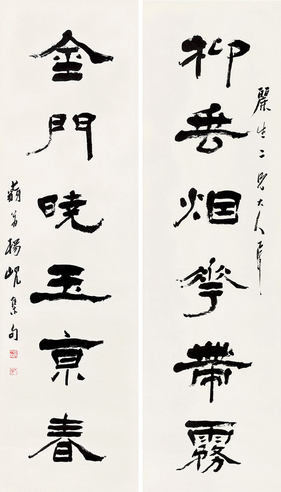 麗生二兄大人
柳垂烟華帶霧
金門曉玉京春
藐翁楊峴集句